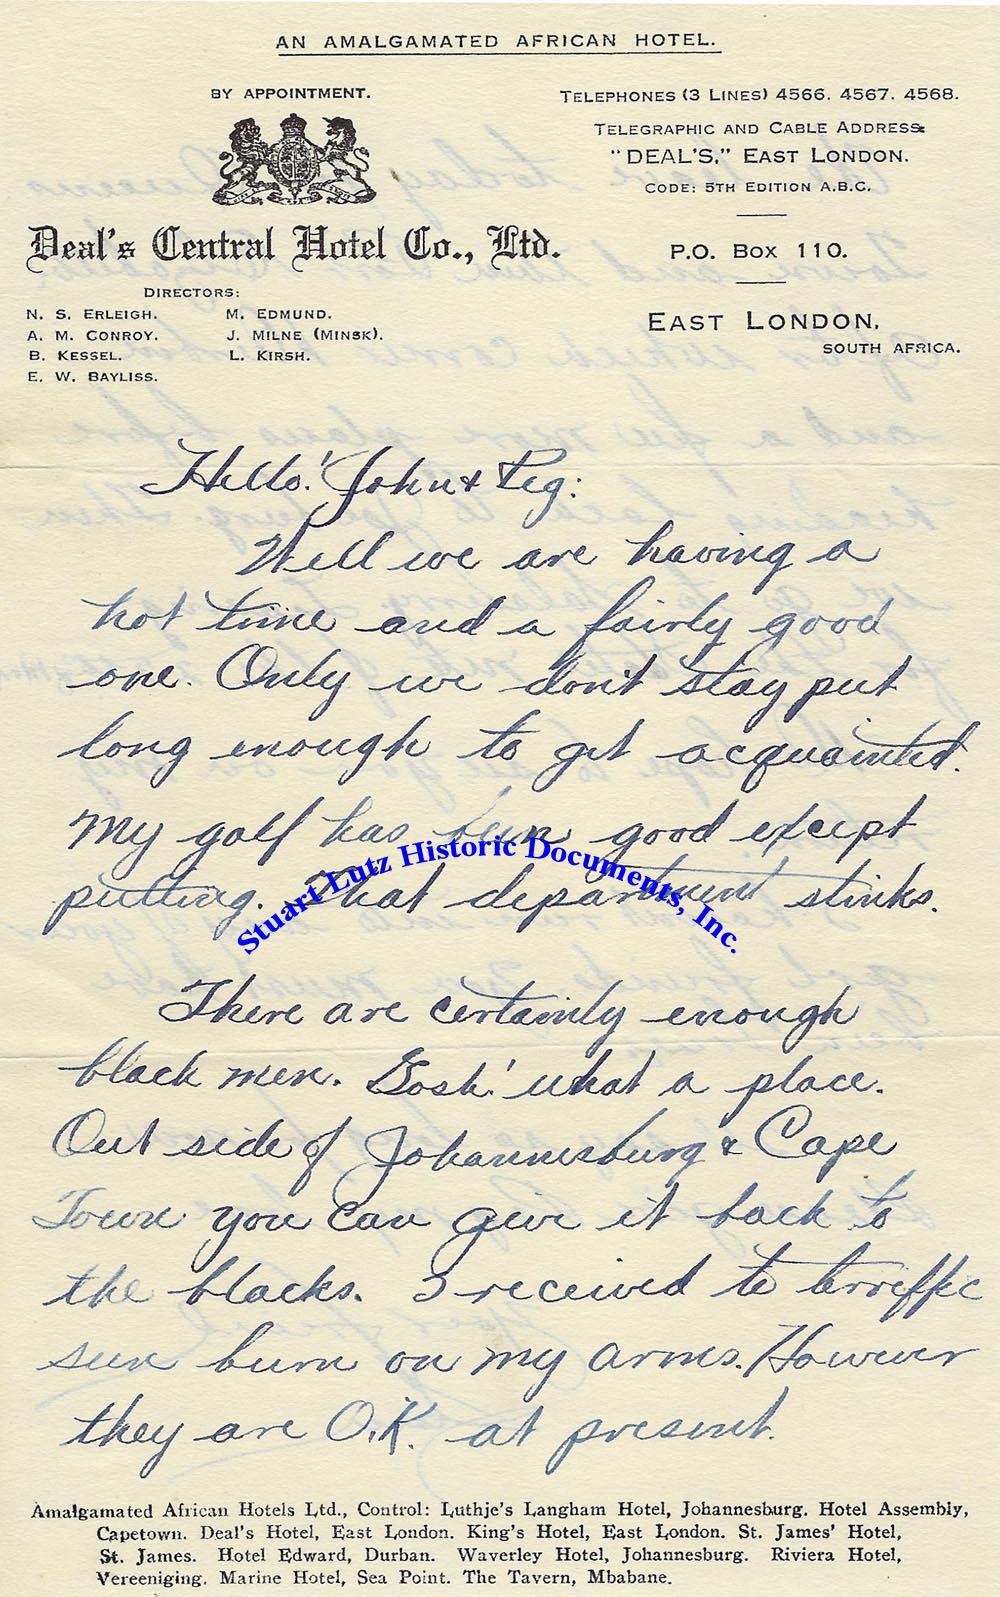 AN AMALGAMATED AFRICAN HOTEL.
BY APPOINTMENT.
TELEPHONES (3 LINES) 4566. 4567. 4568.
TELEGRAPHIC AND CABLE ADDRESS:
"DEAL'S," EAST LONDON.
CODE: 5TH EDITION A.B.C.
Deal's Central Hotel Co., Ltd.
P.O. BOX 110.
DIRECTORS:
N. S. ERLEIGH.
M. EDMUND.
A. M. CONROY.
J. MILNE (MINSK).
B. KESSEL.
L. KIRSH.
E. W. BAYLISS.
EAST LONDON,
SOUTH AFRICA.
Hello! John & Peg:
Well we are having a
hot time and a fairly good
one. Only we don't stay put
long enough to get acquainted.
My golf has been good except
putting. That department stinks.
Stuart Lutz Historic Documents, Inc.
There are certainly enough
black men. Gosh! what a place.
Out side of Johannesburg & Cape
Town you can give it back to
the blacks. I received to terriffic
sun burn on my arms. However
they are O.K. at present.
Amalgamated African Hotels Ltd., Control: Luthje's Langham Hotel, Johannesburg. Hotel Assembly,
Capetown. Deal's Hotel, East London. King's Hotel, East London. St. James' Hotel,
St. James. Hotel Edward, Durban. Waverley Hotel, Johannesburg. Riviera Hotel,
Vereeniging. Marine Hotel, Sea Point. The Tavern, Mbabane.